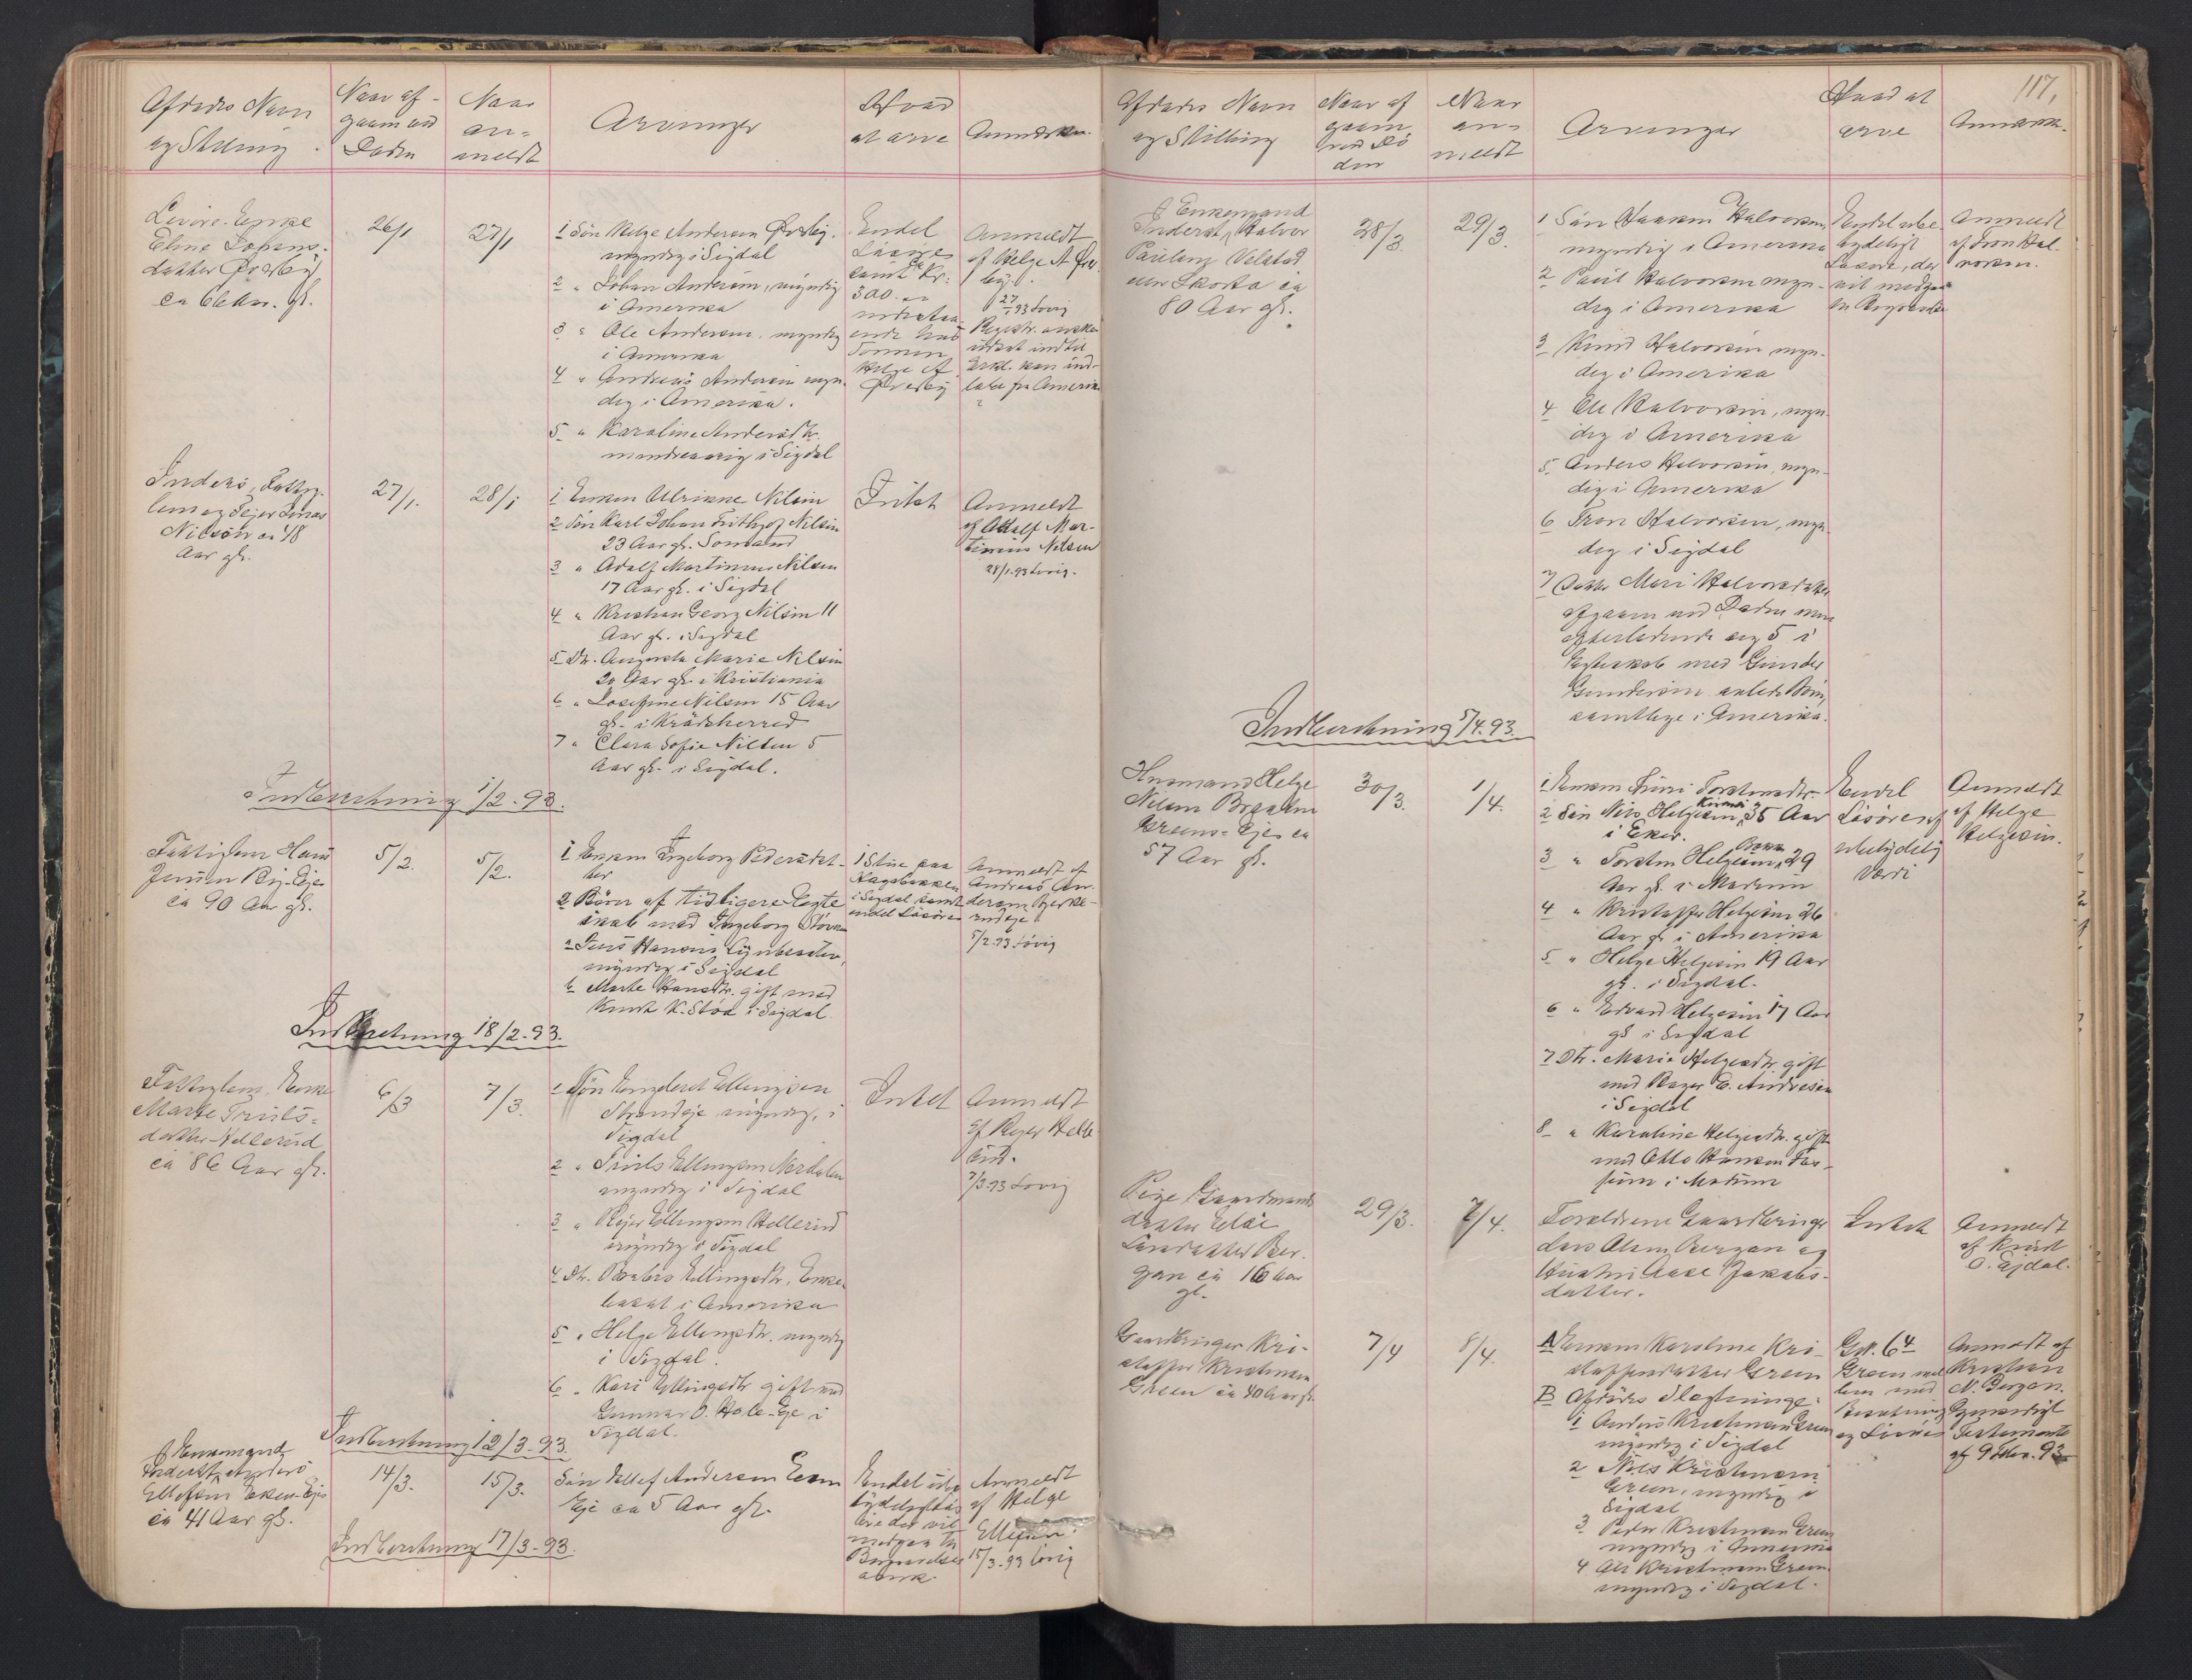 Afdødes Navn
og Stilling
Naar af-
gaaen ved
Døden
Naar
an-
meldt
Arvinger
Hvad
at arve
Anmærkn.
Levire-Enke
Eline Hovens-
datter Øvreby
ca 66 Aar. gl.
26/1
27/1
1 Søn Helge Andersen Øvreby.
myndig i Sigdal
2 " Johan Andersen, myndig
i Amerika
3 " Ole Andersen, myndig
i Amerika
4 " Andreas Andersen myn-
dig i Amerika.
5 " Karoline Andersdtr.
mindreaarig i Sigdal
Endel
Løsøre
samt ca Kr:
300.
indestaa-
ende hos
Sønnen
Helge A.
Øvreby
Anmeldt
af Helge A Øvre-
by.
27/1 93 Lovig
Registr. ønskes
udsat indtil
Erkl. kan ind-
løbe fra Amerika
Inderst, Fattig-
lem og Ejer Jonas
Nilsen ca 48
Aar gl.
27/1.
28/1
1 Enken Ulrikke Nilsen
2 Søn Karl Johan Frithjof Nilsen
23 Aar gl. Sømand
3 " Adolf Martinius Nilsen
17 Aar gl. i Sigdal
4 " Kristian Georg Nilsen 11
Aar gl. i Sigdal
5 Dtr. Augusta Marie Nilsen
20 Aar gl. i Kristiania
6 " Josefine Nilsen 15 Aar
gl. i Krødsherred
7 " Clara Sofie Nilsen 5
Aar gl. i Sigdal.
Intet
Anmeldt
af Adolf Mar-
tinius Nilsen
28/1.93 Lovig.
Indberetning 1/2-93.
Fattiglem Hans
Jensen Bij-Eje
ca 90 Aar gl.
5/2.
5/2.
1 Enken Ingeborg Pedersdat-
ter
2 Børn af tidligere Egte-
skab med Ingeborg
a Jens Hansen
myndig i Sigdal
b Marte Hansdtr. gift med
Knut K. Støa i Sigdal.
1 Stue paa
Hagabakken
i Sigdal samt
endel Løsøre
Anmeldt af
Andreas An-
dersen
5/2.93 Lovig
Indberetning 18/2-93.
Fattiglem, Enke
Marte Truls-
datter Hellerud
ca 86 Aar gl.
6/3
7/3.
1 Søn Engebret Ellingsen
Strandeje myndig, i
Sigdal
2 " Truls Ellingsen Nerdalen
myndig i Sigdal
3 " Rejer Ellingsen Hellerud
myndig i Sigdal
4 Dtr. Barbro Ellingsdtr, Enke
bosat i Amerika
5 " Helge Ellingsdtr. myndig
i Sigdal.
6 " Kari Ellingsdtr gift med
Gunnar O. Hole-Eje i
Sigdal.
Intet
Anmeldt
af Rejer Helle-
rud.
7/3.93 Lovig
Indberetning 12/3-93.
Enkemand
Inderst, Anders
Ellefsen Eken-Eje
ca 41 Aar gl.
14/3.
15/3.
Søn Ellef Andersen Eken
Eje ca 5 Aar gl.
Endel ube-
tydelig Løs-
øre der vil
medgaa til
Begravelses
omk.
Anmeldt
af Helge
Ellefsen
15/3-93 Lovig
Indberetning 17/3-93.
117.
Afdødes Navn
og Stilling
Naar af
gaaen
ved Dø
den
Naar
an-
meldt
Arvinger
Hvad at
arve
Anmærkn.
Enkemand
Inderst, Halvor
Paulsen Velstad
eller Skorta ca
80 Aar gl.
28/3
29/3.
1 Søn Haaken Halvorsen
myndig i Amerika
2 " Paul Halvorsen myn-
dig i Amerika
3 Knud Halvorsen myn-
dig i Amerika
4 Ole Halvorsen, myn-
dig i Amerika
5 Anders Halvorsen, myn-
dig i Amerika
6 Tron Halvorsen, myn-
dig i Sigdal
7 Datter Mari Halvorsdatter
afgaaen ved Døden men
efterladende sig 5 i
Egteskab med Gunder
Gundersen avlede Børn,
samtlige i Amerika.
Endel ube-
tydeligt
Løsøre, der
vil medgaa
til Begravelse
Anmeldt
af Tron Hal-
vorsen.
Indberetning 5/4.93.
Husmand Helge
Nilsen Braaten
Greens-Eje ca
57 Aar gl.
30/3.
1/4.
1 Enken Guri Torstensdtr.
2 Søn Nils Helgesen 35 Aar
i Eker.
3 " Torsten Helgesen 29
Aar gl. i Modum
4 " Kristoffer Helgesen 26
Aar gl i Amerika
5 " Helge Helgesen 19 Aar
gl. i Sigdal.
6 " Edvard Helgesen 17 Aar
gl i Sigdal
7 Dtr. Marie Helgesdtr gift
med Roger E. Andresen
i Sigdal
8 " Karoline Helgesdtr. gift
med Otto Hansen Fos-
sum i Modum
Endel
Løsøre af
ubetydelig
Værdi
Anmeldt
af Helge
Helgesen.
Pige Gaardmands
datter Eldie
Larsdatter Ber-
gan ca 16 Aar
gl.
29/3.
7/4.
Forældrene Gaardbruger
Lars Olsen Bergan og
Hustru Aase Jakobs-
datter.
Intet
Anmeldt
af Knut
O. Ejdal.
Gaardbruger Kri-
stoffer Kristensen
Green ca 40 Aar gl.
7/4
8/4.
A Enken Karoline Kri-
stoffersdatter Green
B Afdødes Slægtninge:
1 Anders Kristensen Green
myndig i Sigdal
2 Nils Kristensen
Green, myndig i
Sigdal
3 Peder Kristensen Green
myndig i Amerika
4 Ole Kristensen Green
myndig i Sigdal.
GN. 64
Green mel-
lem med
Besætning
og Løsøre
Anmeldt af
Kristian
N. Bergan.
Gjensidigt
Testamente
af 9 Febr. 93